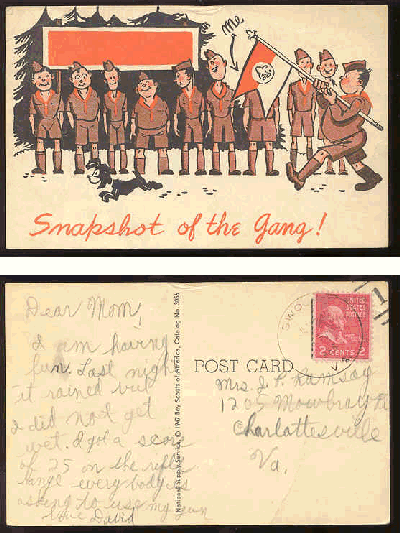 me
Snapshot of the Gang!
Dear Mom,
I am having
fun. Last night
it rained but
I did not get
wet. I got a score
of 25 on the rifle
range everybody is
asking to use my gun
Love David
National Supply Service, © 1947 Boy Scouts of America, Catalog No. 3055
POST CARD
Mrs. J. P. Ramsay
1205
Charlottesville
Va.
UNITED
STATES
POSTAGE
2 CENTS 2